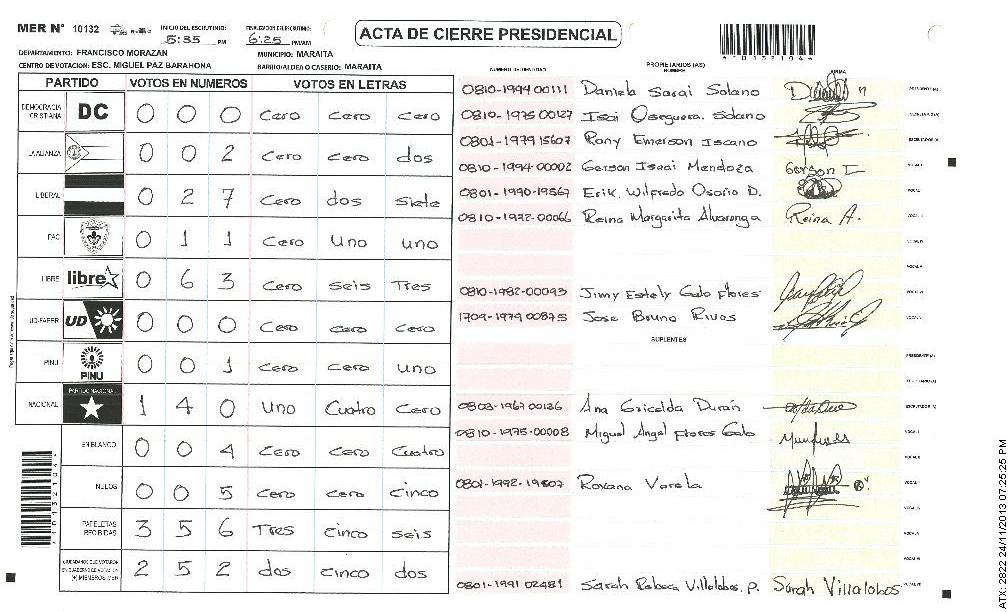 MER N° 10132
INICIO DEL ESCRUTINIO: 5:35 PM
FINALIZACION DEL ESCRUTINIO: 6:25 PM/AM
ACTA DE CIERRE PRESIDENCIAL
DEPARTAMENTO: FRANCISCO MORAZAN
MUNICIPIO: MARAITA
CENTRO DE VOTACION: ESC. MIGUEL PAZ BARAHONA
BARRIO/ALDEA O CASERIO: MARAITA
PARTIDO VOTOS EN NUMEROS VOTOS EN LETRAS
DEMOCRACIA CRISTIANA DC 0 0 0 Cero Cero Cero
LA ALIANZA 0 0 2 Cero Cero dos
LIBERAL 0 2 7 Cero dos Siete
PAC 0 1 1 Cero Uno uno
LIBRE libre 0 6 3 Cero seis Tres
UD-FAPER UD 0 0 0 Cero Cero Cero
PINU PINU 0 0 1 Cero Cero uno
NACIONAL PARTIDO NACIONAL 1 4 0 Uno Cuatro Cero
EN BLANCO 0 0 4 Cero Cero Cuatro
NULOS 0 0 5 Cero Cero cinco
PAPELETAS RECIBIDAS 3 5 6 Tres cinco seis
CIUDADANOS QUE VOTARON EN CUADERNO DE VOTACION (+) MIEMBROS MER 2 5 2 dos cinco dos
NUMERO DE IDENTIDAD PROPIETARIOS (AS) NOMBRE FIRMA
0810-1994 00111 Daniela Sarai Solano PRESIDENTE (A)
0810-1975 00127 Isai Oseguera Solano
0801-1979 15607 Rony Emerson Iscano ESCRUTADOR (A)
0810-1994-00002 Gerson Isaai Mendoza Gerson I VOCAL I
0801-1990-19567 Erik Wilfredo Osorio D. VOCAL
0810-1972-00066 Reina Margarita Alvarenga Reina A. VOCAL
0810-1982-00093 Jimy Estely Galo Flores VOCAL
1709-1979 00875 Jose Bruno Rivas VOCAL
SUPLENTES
PRESIDENTE (A)
0803-1967 00136 Ana Gricelda Durán ESCRUTADOR (A)
0810-1975-00008 Miguel Angel Flores Galo VOCAL I
0801-1992-19807 Roxana Varela VOCAL
0801-1991 02481 Sarah Rebeca Villalobos. P. Sarah Villalobos
ATX 2822 24/11/2013 07:25:25 PM